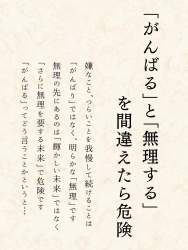 「がんばる」と「無理する」
を間違えたら危険
嫌なこと、つらいことを我慢して続けることは
「がんばり」ではなく、明らかな「無理」です
無理の先にあるのは「輝かしい未来」ではなく
「さらに無理を要する未来」で危険です
「がんばる」ってどう言うことかというと…